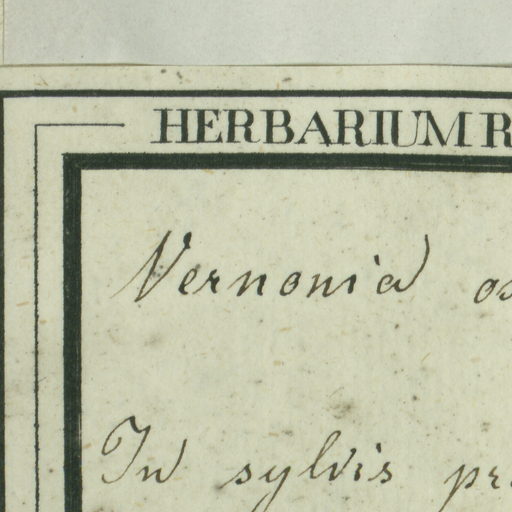 HERBARIUM R
Vernonia os
In sylvis pr